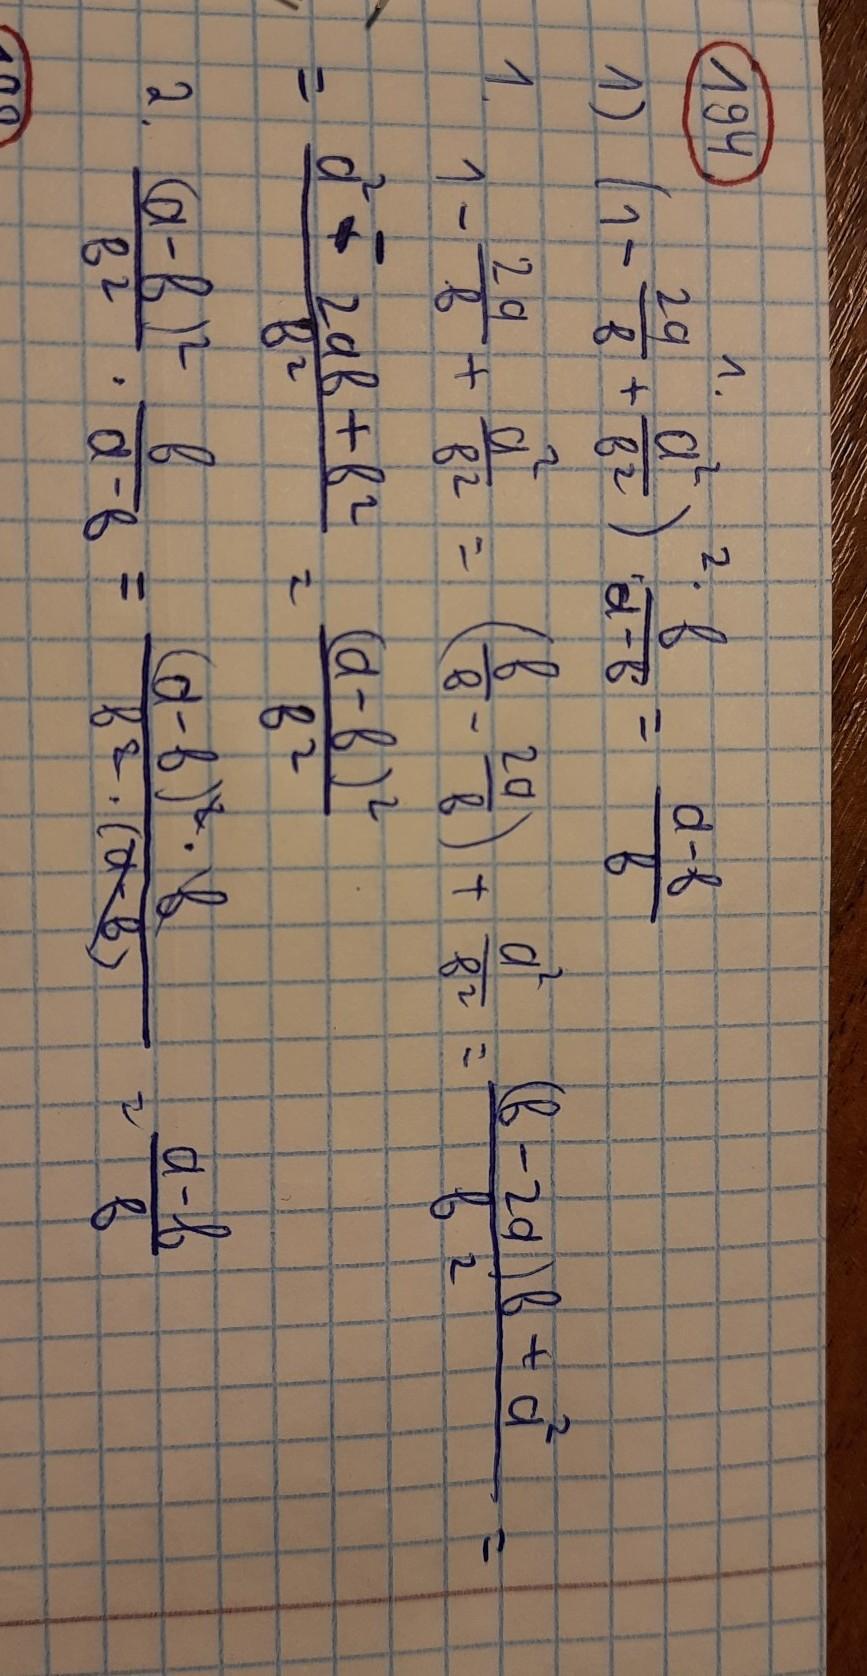 194
1) (1 - 2a/b + a²/b²) · b/(a-b) = (a-b)/b
1. 1 - 2a/b + a²/b² = (b/b - 2a/b) + a²/b² = ((b - 2a)b + a²)/b² =
= (a² - 2ab + b²)/b² = (a-b)²/b²
2. (a-b)²/b² · b/(a-b) = ((a-b)² · b)/(b² · (a-b)) = (a-b)/b